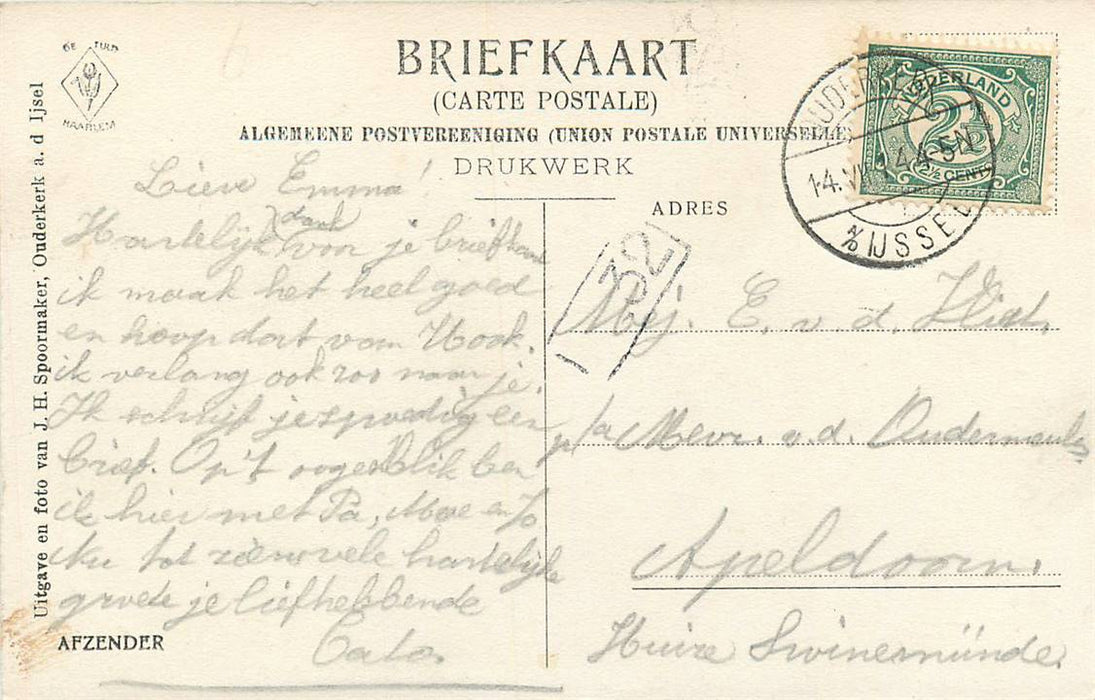 DE TULP
HAARLEM
Uitgave en foto van J. H. Spoormaker, Ouderkerk a. d Ijsel
BRIEFKAART
(CARTE POSTALE)
ALGEMEENE POSTVEREENIGING (UNION POSTALE UNIVERSELLE)
DRUKWERK
NEDERLAND
2½
2½ CENT
OUDERKERK
14.VII 4-5N
A/D IJSSEL
32
Lieve Emma!
dank
Hartelijk voor je briefkaart
ik maak het heel goed
en hoop dat van U ook.
ik verlang ook zoo naar je.
Ik schrijf je spoedig een
brief. Op 't oogenblik ben
ik hier met Pa, Moe en Jo
Nu tot ziens vele hartelijke
groete je liefhebbende
Cato.
AFZENDER
ADRES
Mej. E. v. d.
p/a Mevr. v. d. Oudermeulen
Apeldoorn.
Huize Swinemünde.